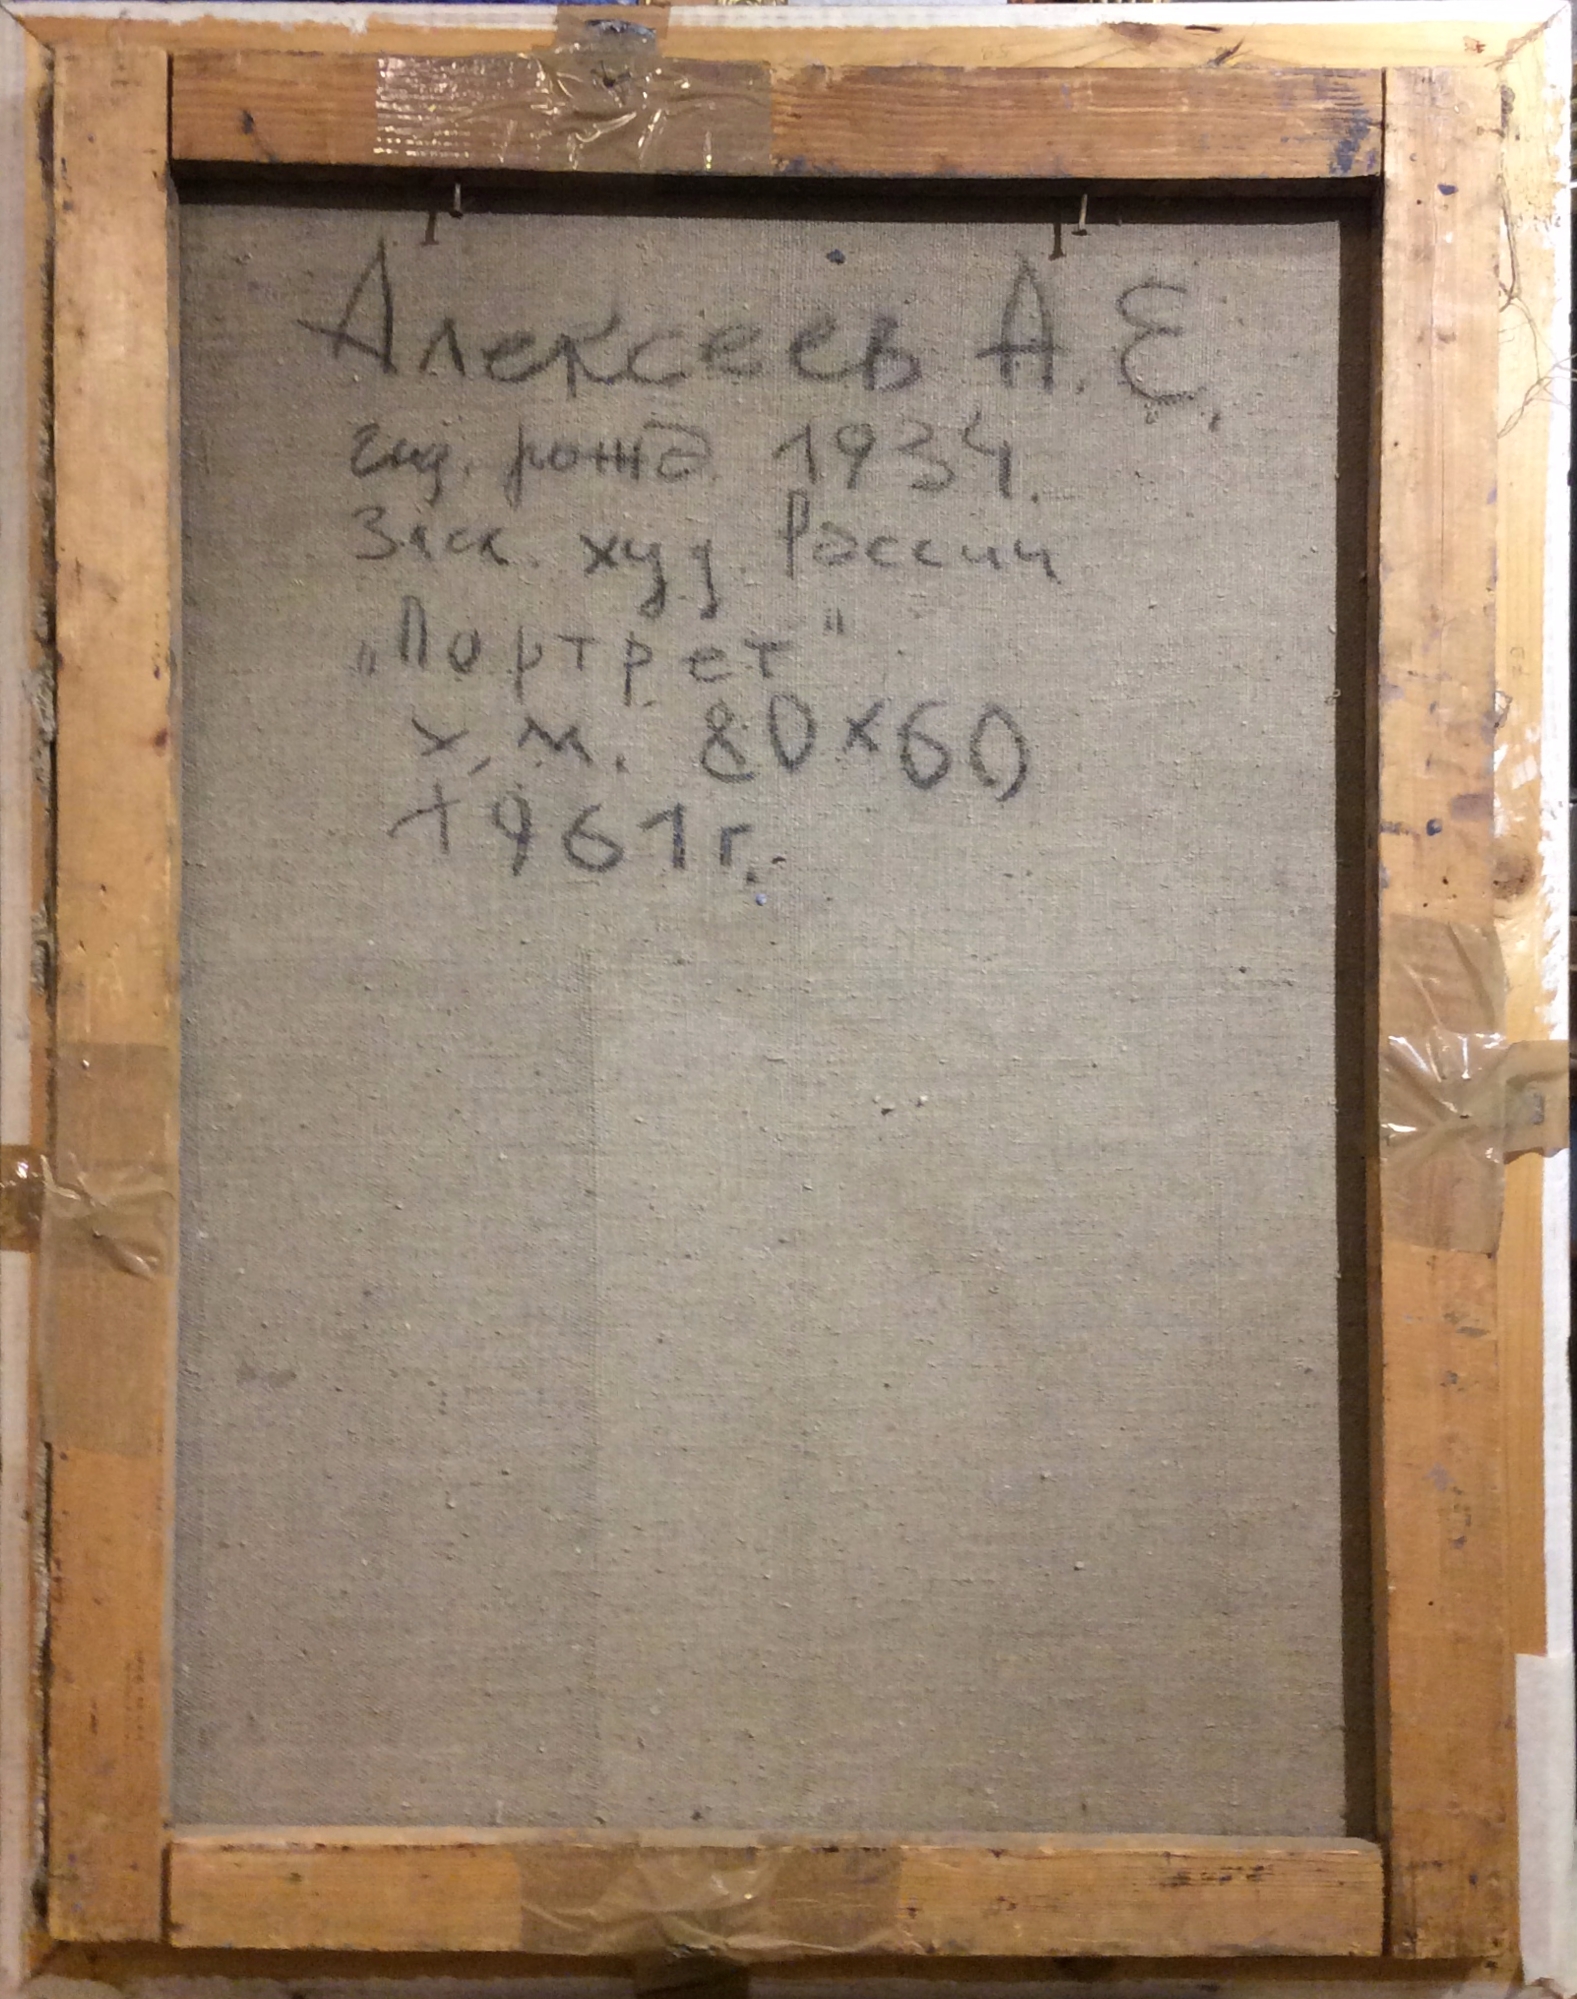 Алексеев А. Е.
год. рожд. 1934.
Засл. худ. России
„Портрет"
х. м. 80×60
1961 г.